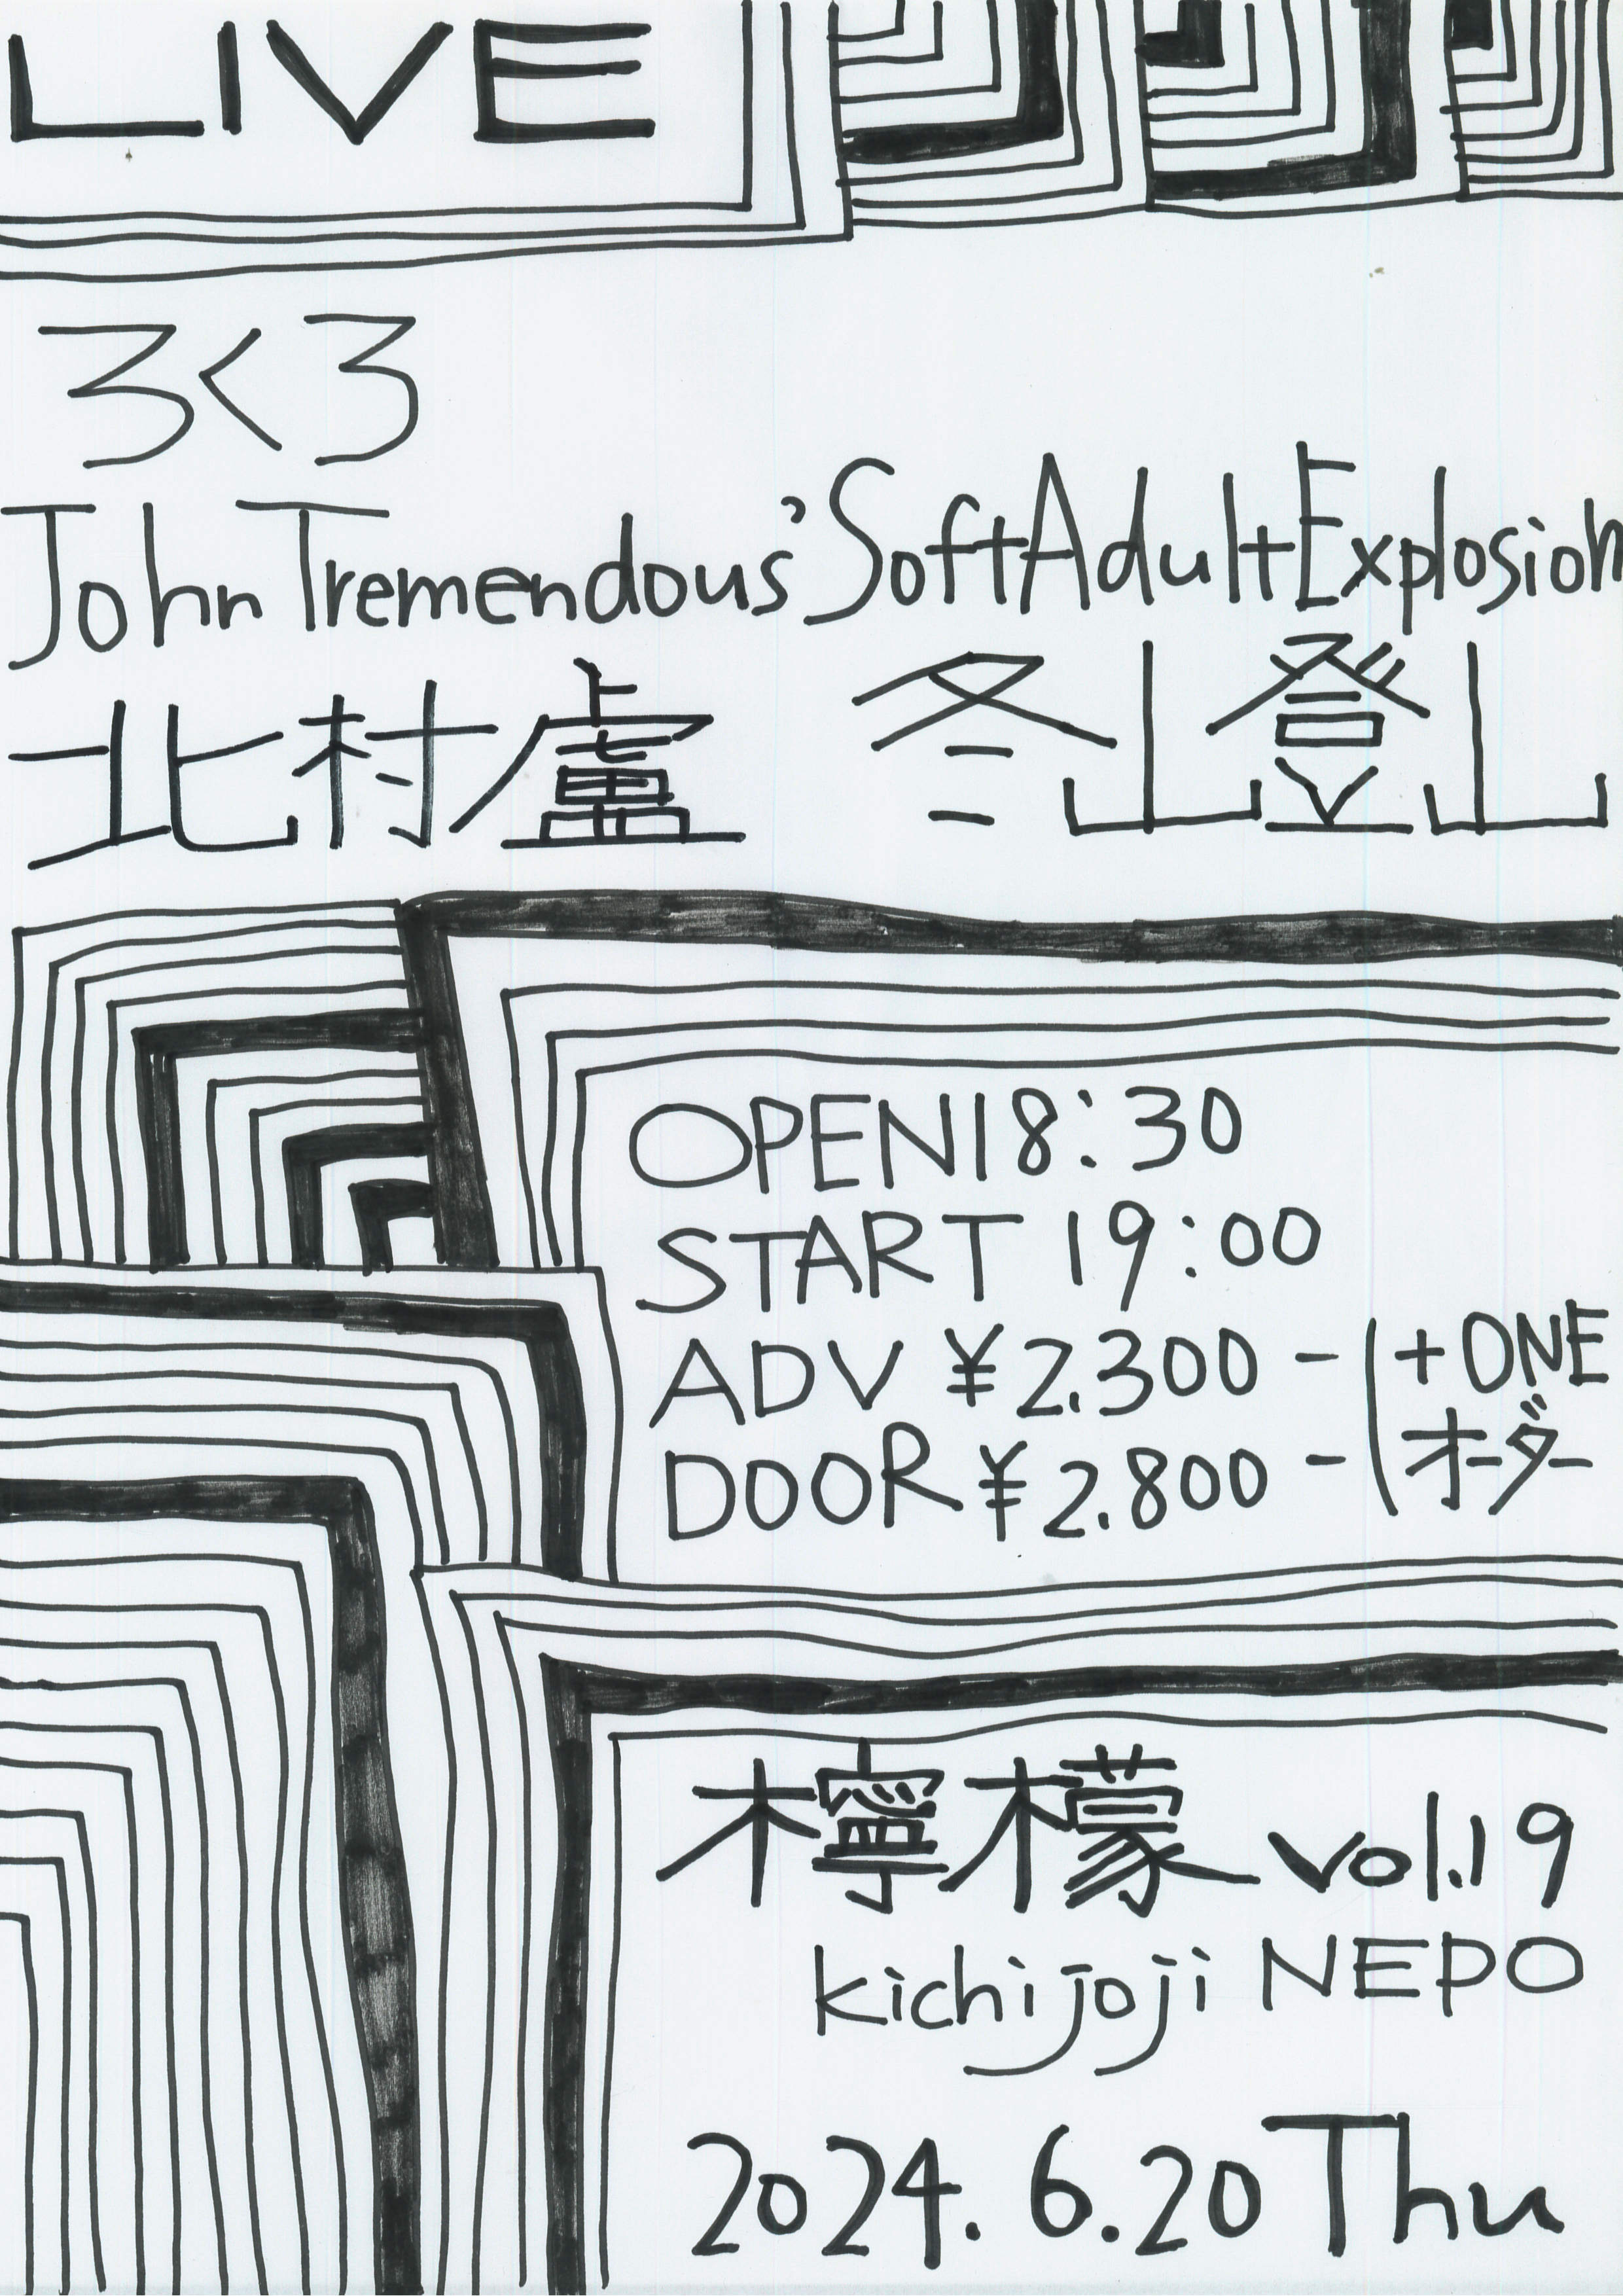 LIVE
ろくろ
John Tremendous' Soft Adult Explosion
北村盧 冬山登山
OPEN 18:30
START 19:00
ADV ¥2.300- (+ONE
DOOR ¥2.800- オーダー
檸檬 vol.19
kichijoji NEPO
2024.6.20 Thu